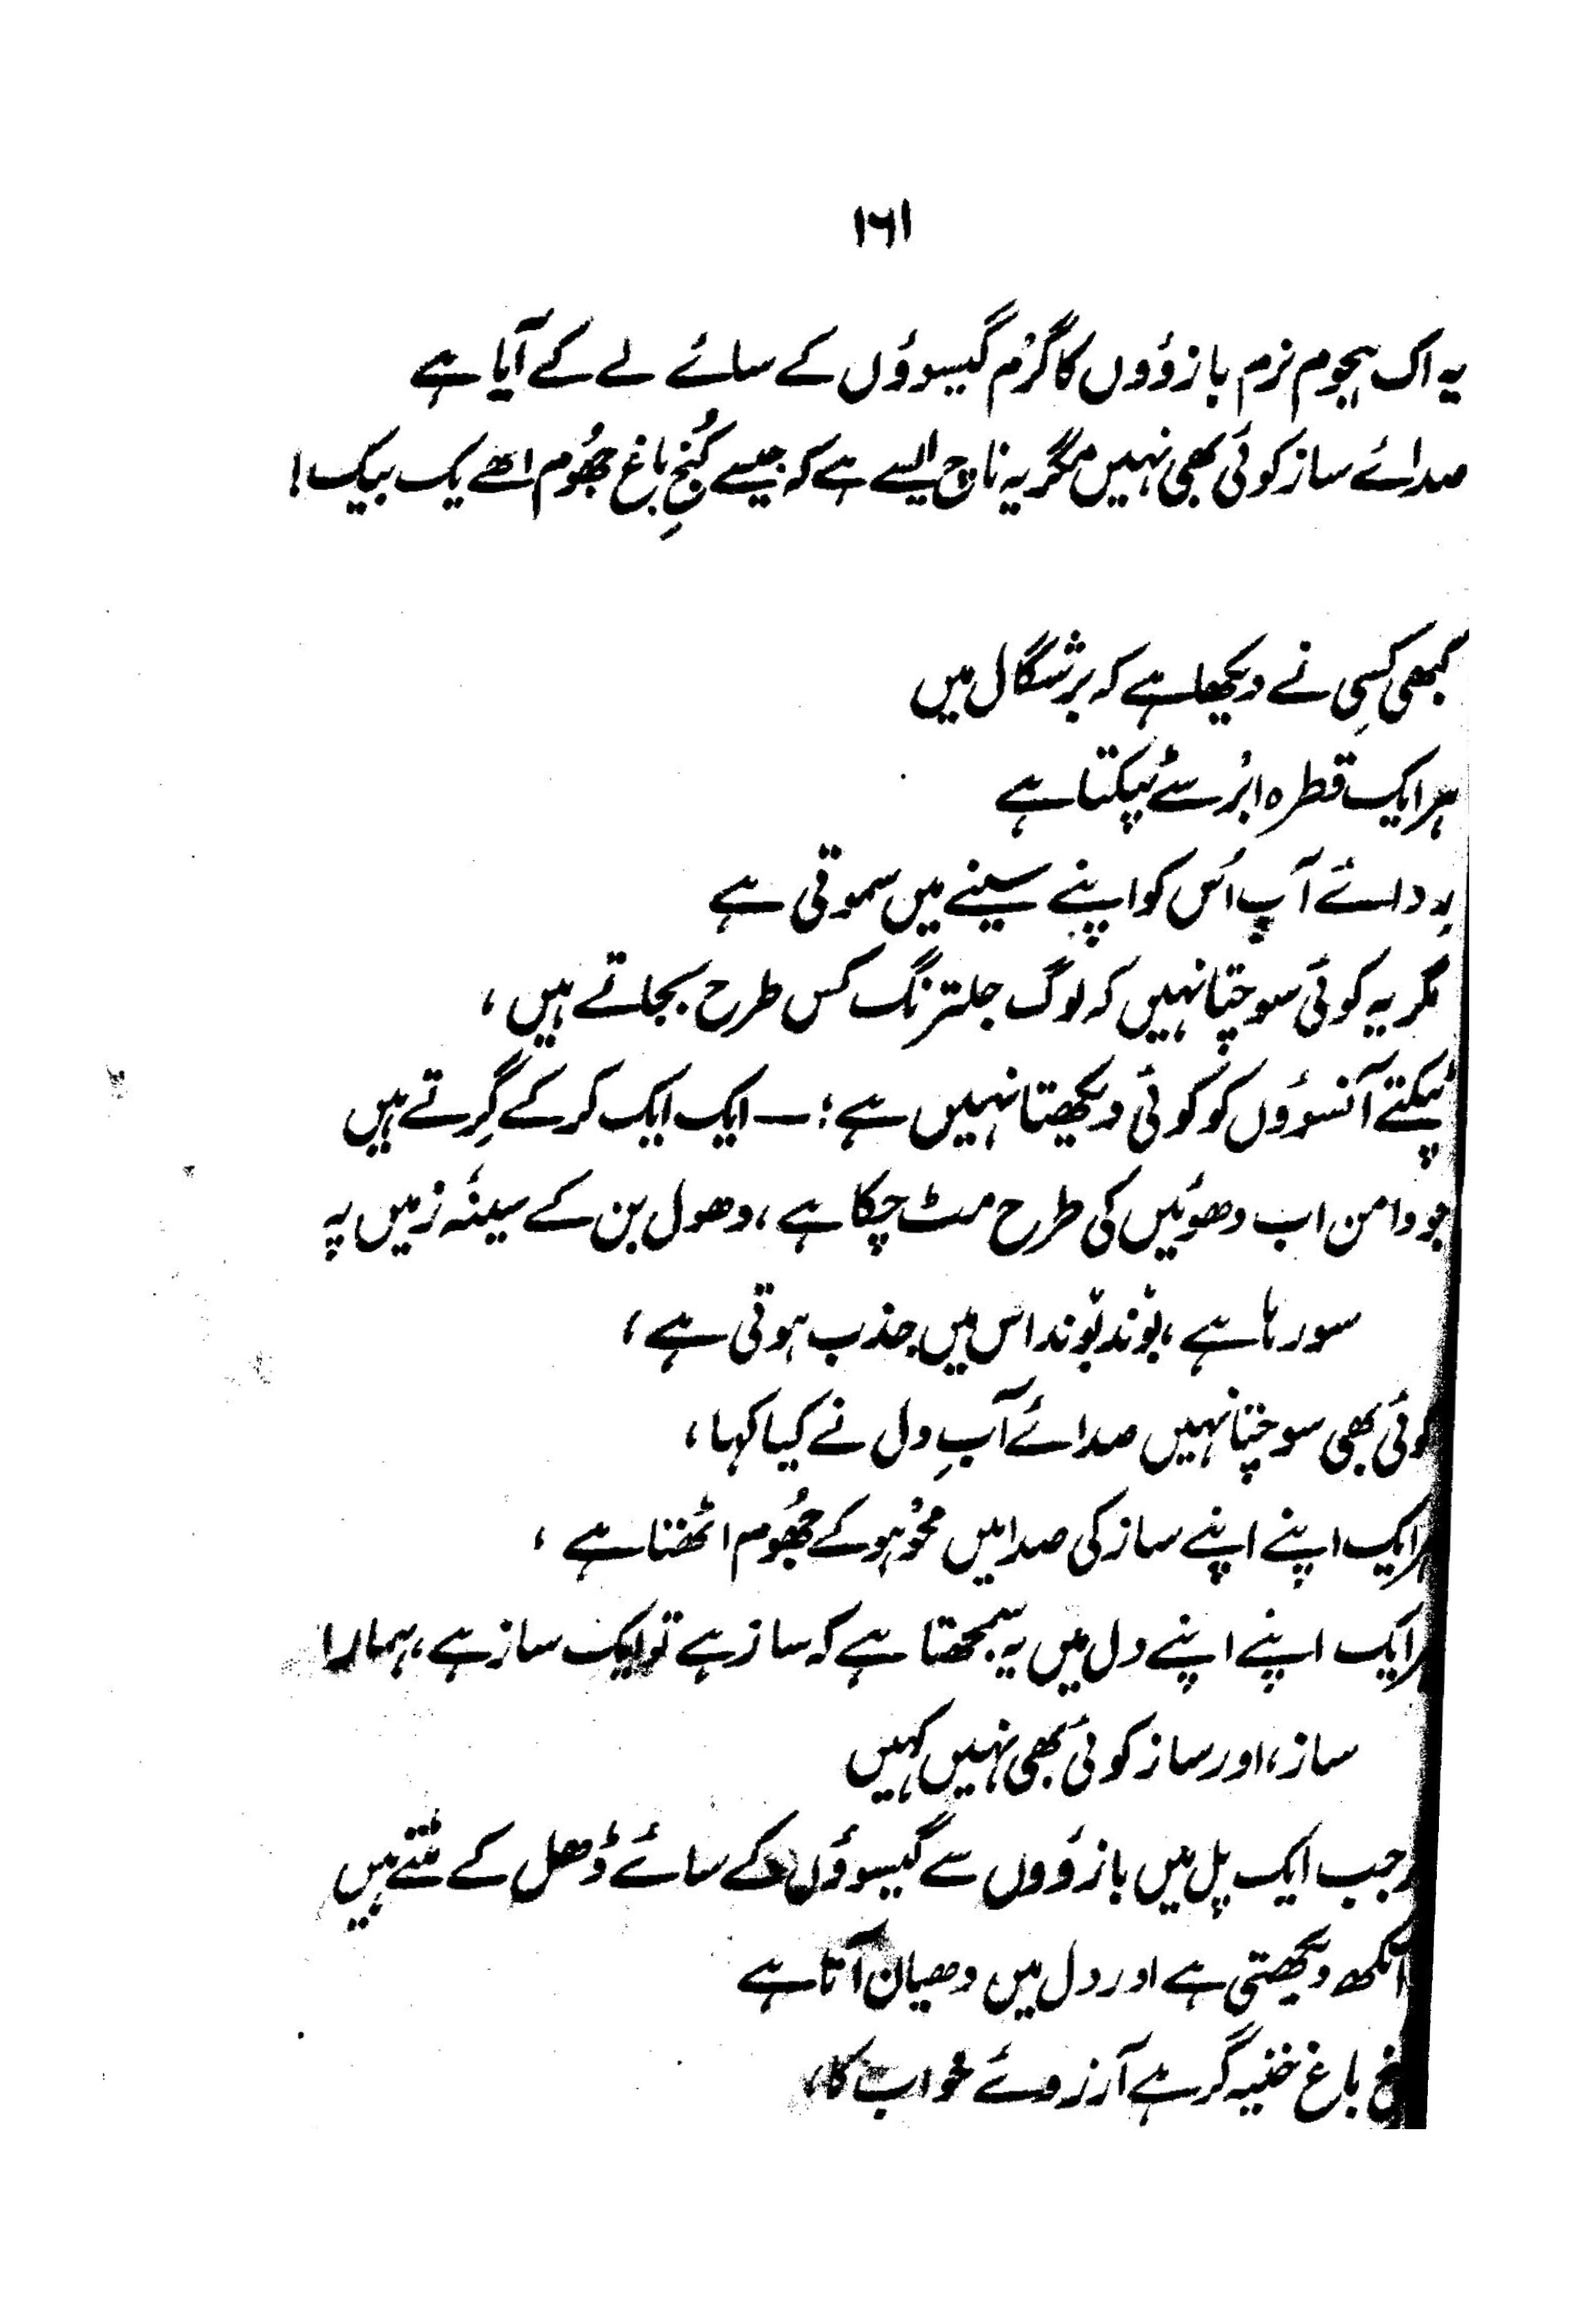 ۱۶۱
یہ اک ہجوم نرم بازوؤں کا گرْم گیسوؤں کے سائے لے کے آیا ہے
صدائے ساز کوئی بھی نہیں مگر یہ ناچ ایسے ہے کہ جیسے کُنجِ باغ جھُوم اٹھے یک بیک!
کبھی کسِی نے دیکھا ہے کہ برشگال میں
ہر ایک قطرہ ابْر سے ٹپکتا ہے
ردائے آب اُس کو اپنے سینے میں سموتی ہے
مگر یہ کوئی سوچتا نہیں کہ لوگ جلترنگ کس طرح بجاتے ہیں،
ٹپکتے آنسوؤں کو کوئی دیکھتا نہیں ہے؛ — ایک ایک کر کے گِرتے ہیں
جو دامن اب دھوئیں کی طرح مٹ چکا ہے، دھول بن کے سینۂ زمیں پہ
سو رہا ہے، بوْند بوْند اس میں جذب ہوتی ہے،
کوئی بھی سوچتا نہیں صدائے آبِ دل نے کیا کہا،
ہر ایک اپنے اپنے ساز کی صدا میں محوْ ہو کے جھُوم اٹھتا ہے،
ہر ایک اپنے اپنے دل میں یہ سمجھتا ہے کہ ساز ہے تو ایک ساز ہے، ہمارا
ساز، اور ساز کوئی بھی نہیں کہیں
جب ایک پل میں بازوؤں سے گیسوؤں کے سائے ڈھل کے مٹتے ہیں
آنکھ دیکھتی ہے اور دل میں دھیان آتا ہے
باغ خفیہ گر ہے آرزوئے خواب کا،